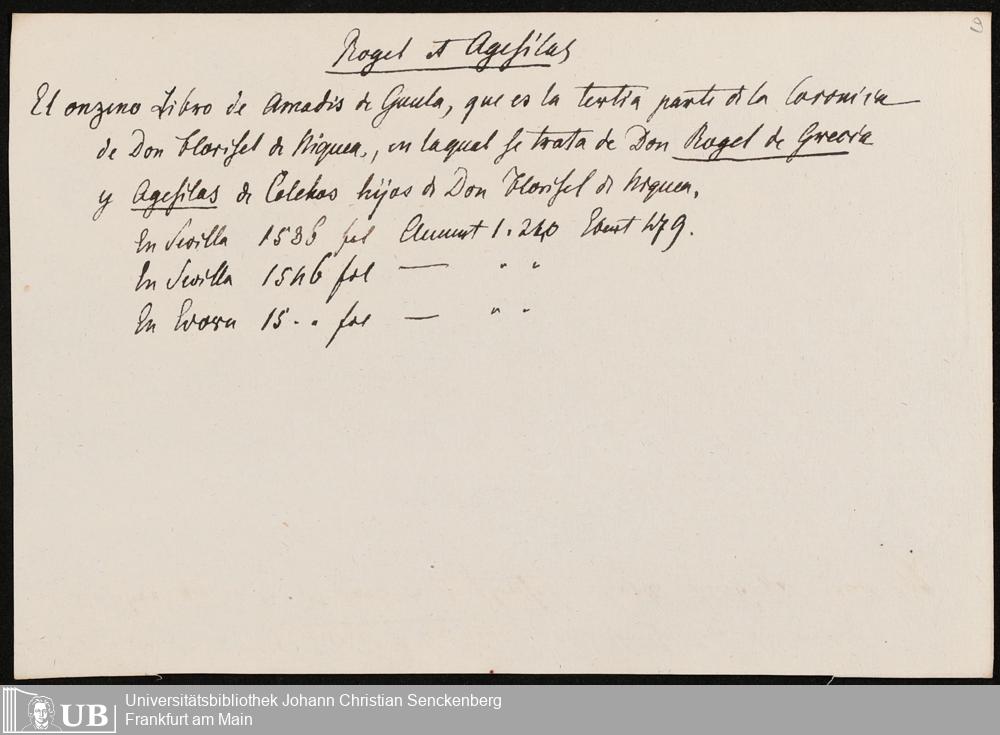 Rogel et Agesilas
El onzeno Libro de Amadis de Gaula, que es la tertia parte de la Coronica
de Don Florisel de Niquea, en laqual se trata de Don Rogel de Grecia
y Agesilas de Colchos hijos de Don Florisel de Niquea.
En Sevilla 1536 fol Clement 1. 240 Ebert 479.
En Sevilla 1546 fol — " "
En Evora 15. . fol — " "
9
UB
Universitätsbibliothek Johann Christian Senckenberg
Frankfurt am Main